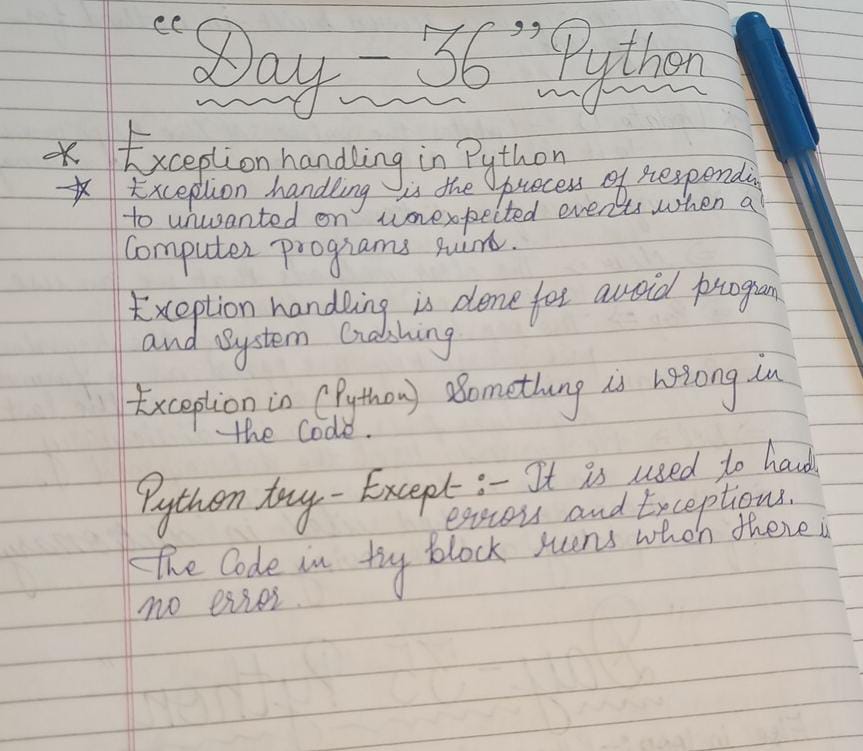 “Day - 36” Python
* Exception handling in Python
* Exception handling is the process of respondin
to unwanted on unexpected events when a
Computer programs runs.
Exception handling is done for avoid program
and system Crashing
Exception in (Python) Something is wrong in
the Code.
Python try - Except :- It is used to hand
errors and Exceptions.
The Code in try block runs when there is
no error.